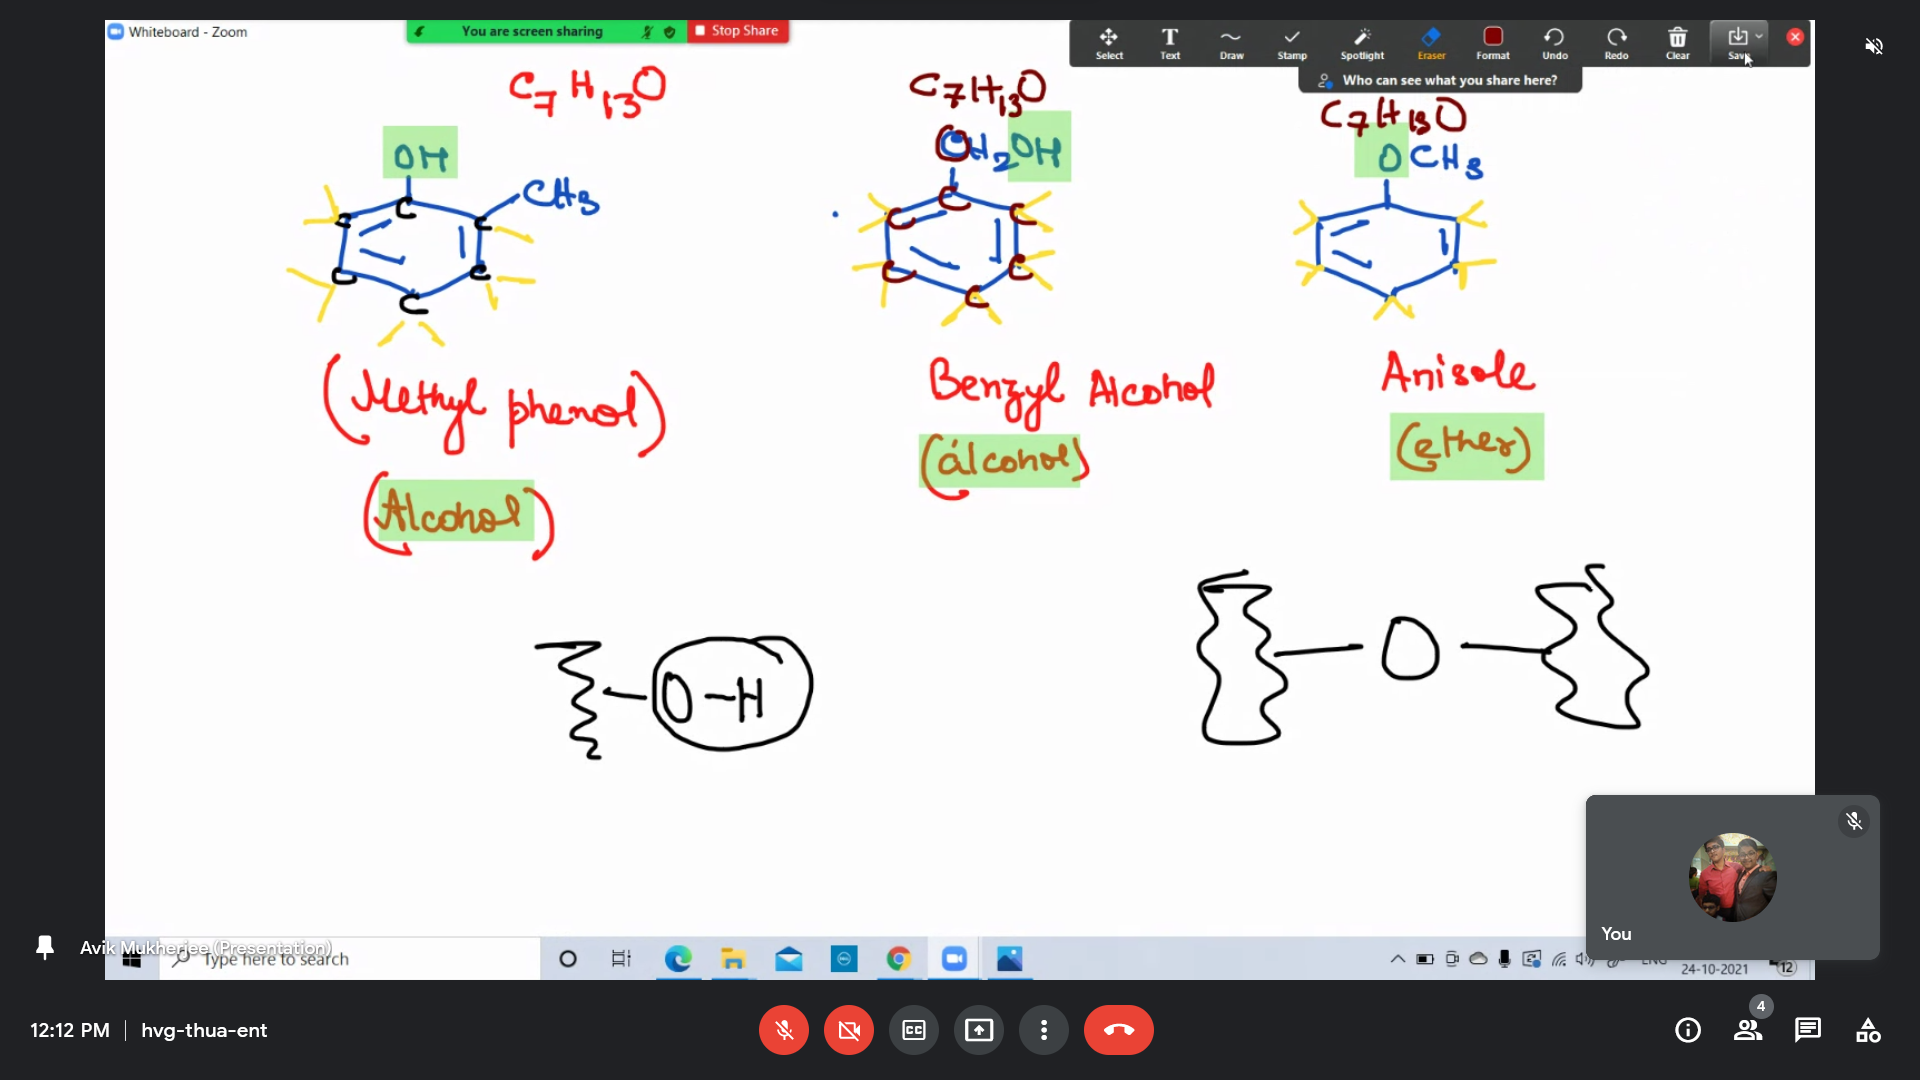 Whiteboard - Zoom
You are screen sharing
Stop Share
Select
Text
Draw
Stamp
Spotlight
Eraser
Format
Undo
Redo
Clear
Save
Who can see what you share here?
C7H13O
C7H13O
C7H13O
OH
CH3
C
C
C
C
C
C
CH2OH
C
C
C
C
C
C
OCH3
(Methyl phenol)
(Alcohol)
Benzyl Alcohol
(alcohol)
Anisole
(ether)
O-H
O
You
Avik Mukherjee (Presentation)
Type here to search
ENG
24-10-2021
12
12:12 PM
hvg-thua-ent
CC
4